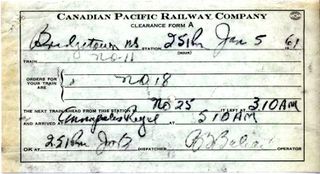 CANADIAN PACIFIC RAILWAY COMPANY
CLEARANCE FORM A
Bridgetown NS STATION, 251 Pm Jan 5 61
(HOUR)
TRAIN No-18
ORDERS FOR YOUR TRAIN ARE No 18
THE NEXT TRAIN AHEAD FROM THIS STATION No 25 IT LEFT AT 310 AM
AND ARRIVED AT Annapolis Royal AT 510 AM
O.K. AT 251 Pm DISPATCHER OPERATOR